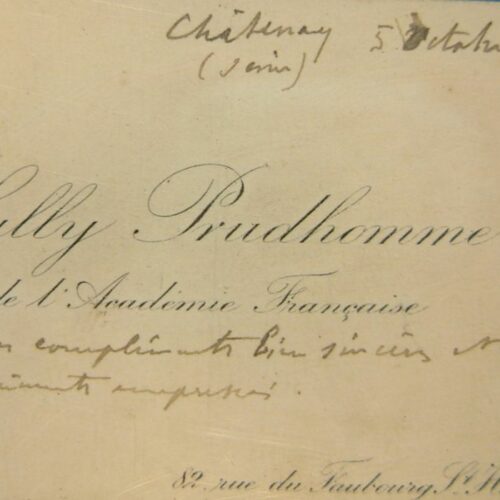 Châtenay 5 Octobre
(Seine)
Sully Prudhomme
de l'Académie Française
compliments bien sincères
empressés.
82, rue du Faubourg St. H